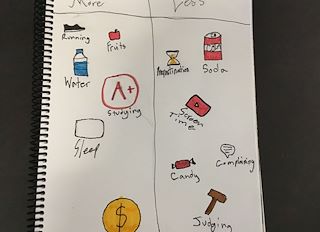 More
Less
Running
Fruits
Water
A+
Studying
Sleep
$
Procrastination
Soda
Screen
Time
Candy
Complaining
Judging